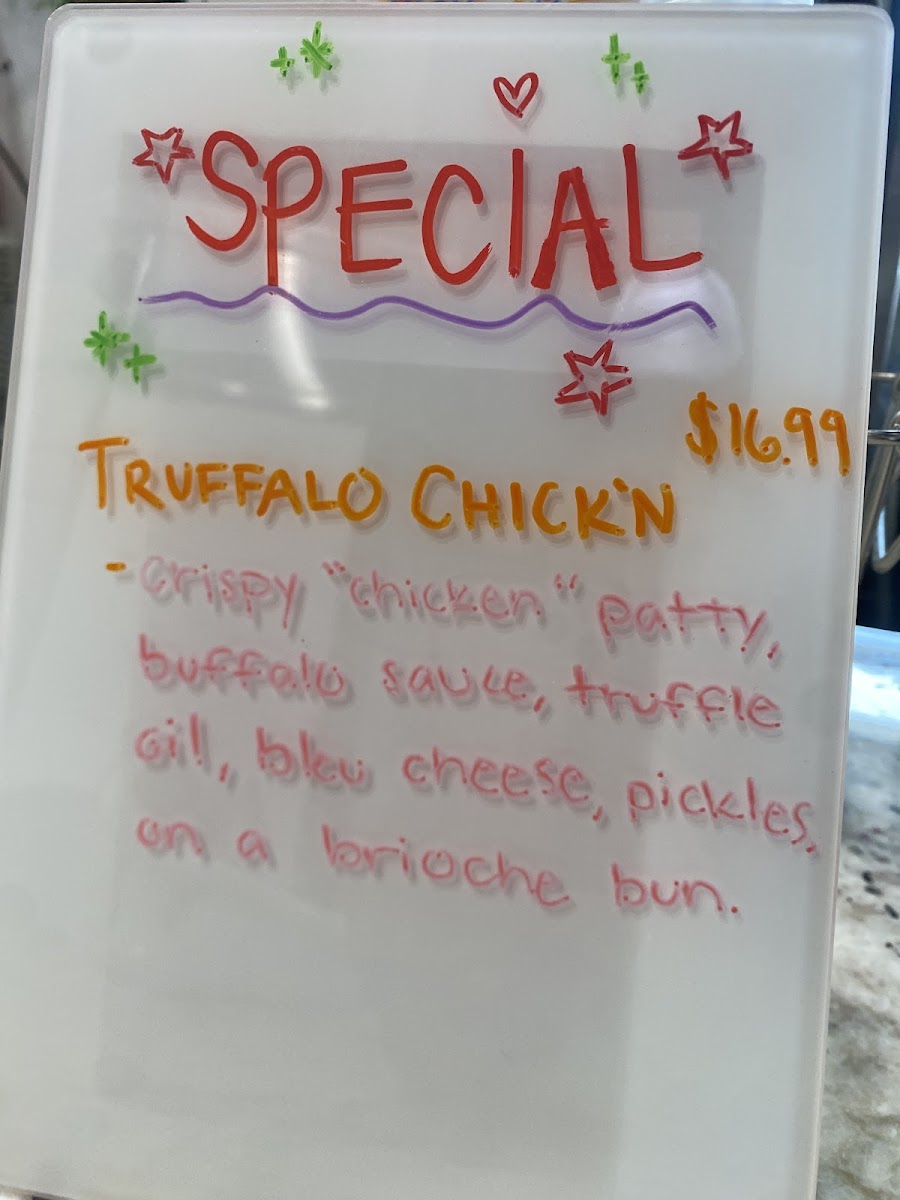 SPECIAL
$16.99
TRUFFALO CHICK'N
- crispy "chicken" patty,
buffalo sauce, truffle
oil, bleu cheese, pickles,
on a brioche bun.